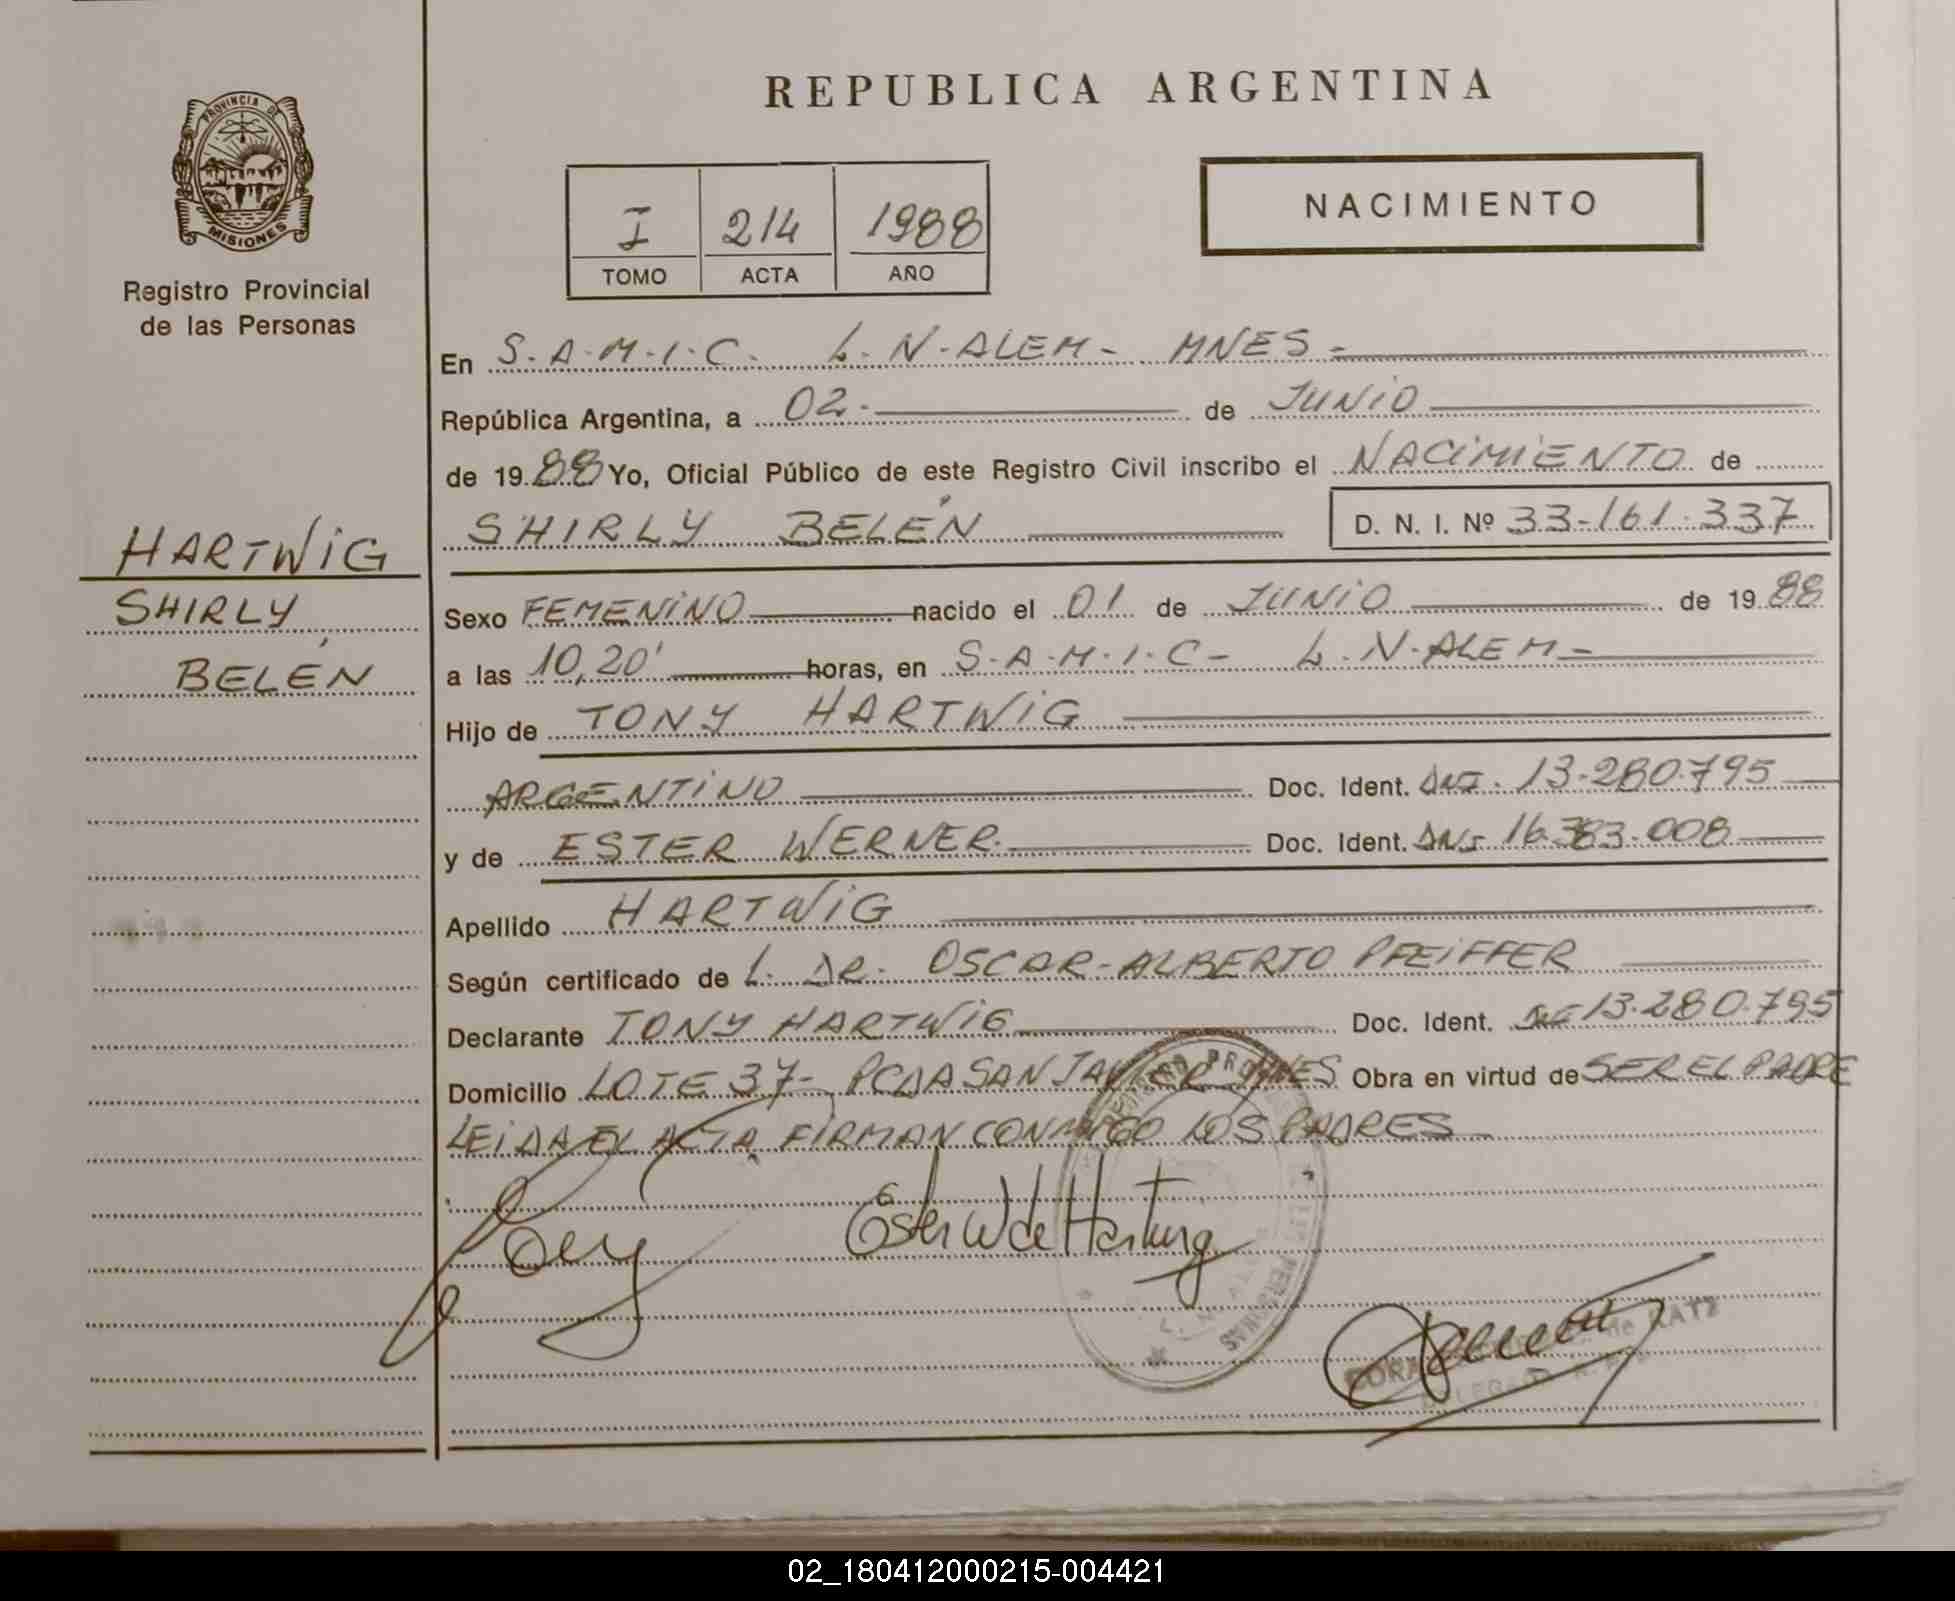 REPUBLICA ARGENTINA
PROVINCIA DE
MISIONES
Registro Provincial
de las Personas
NACIMIENTO
I 214 1988
TOMO ACTA AÑO
HARTWIG
SHIRLY
BELÉN
En S.A.M.I.C. L.N.ALEM- MNES-
República Argentina, a 02- de JUNIO
de 1988 Yo, Oficial Público de este Registro Civil inscribo el NACIMIENTO de
SHIRLY BELÉN D. N. I. Nº 33-161.337
Sexo FEMENINO nacido el 01 de JUNIO de 1988
a las 10,20' horas, en S.A.M.I.C- L.N.ALEM-
Hijo de TONY HARTWIG
ARGENTINO Doc. Ident. DNI. 13-280.795
y de ESTER WERNER. Doc. Ident. DNI 16.383.008
Apellido HARTWIG
Según certificado de L. DR. OSCAR-ALBERTO PFEIFFER
Declarante TONY HARTWIG Doc. Ident. 13.280.795
Domicilio LOTE 37- PCDA SAN JAVIER MNES Obra en virtud de SER EL PADRE
LEIDA EL ACTA FIRMAN CONMIGO LOS PADRES
Ester W de Hartwig
de KATZ
02_180412000215-004421